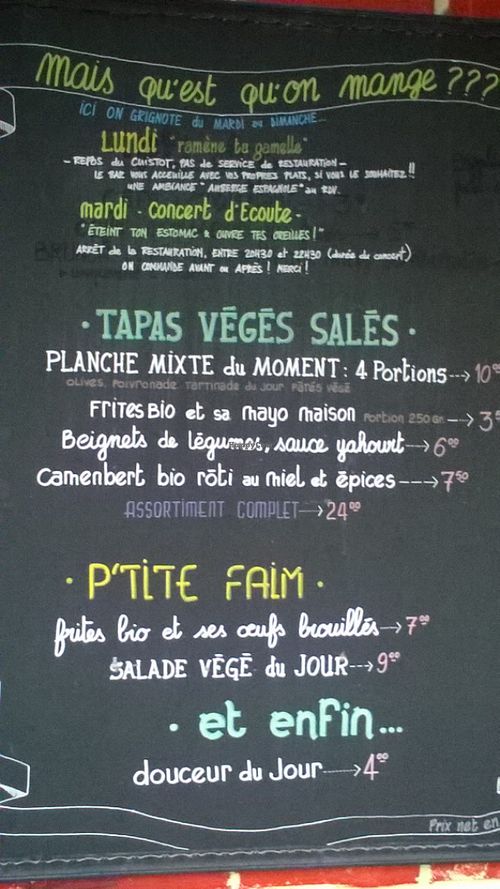 Mais qu'est qu'on mange ???
ICI ON GRIGNOTE du MARDI au DIMANCHE...
LUNDI "ramène ta gamelle"
- REPOS du CUISTOT, PAS de SERVICE de RESTAURATION -
LE BAR VOUS ACCUEILLE AVEC VOS PROPRES PLATS, SI VOUS LE SOUHAITEZ!!
UNE AMBIANCE "AUBERGE ESPAGNOLE" au RDV.
mardi - Concert d'Ecoute -
"ÉTEINT TON ESTOMAC & OUVRE TES OREILLES!"
ARRÊT de la RESTAURATION, ENTRE 20H30 et 22H30 (durée du concert)
ON COMMANDE AVANT ou APRÈS! MERCI!
· TAPAS VÉGÉS SALÉS ·
PLANCHE MIXTE du MOMENT: 4 Portions --> 10
OLIVES, POIVRONADE, TARTINADE DU JOUR, PÂTÉS VÉGÉ
FRITES BIO et sa mayo maison PORTION 250 Gr. --> 3
Beignets de légumes, sauce yahourt --> 6⁰⁰
Camembert bio rôti au miel et épices ---> 7⁵⁰
ASSORTIMENT COMPLET --> 24⁰⁰
· P'TITE FAIM ·
frites bio et ses œufs brouillés --> 7⁰⁰
SALADE VÉGÉ du JOUR --> 9⁰⁰
· et enfin...
douceur du Jour ---> 4⁰⁰
Prix net en